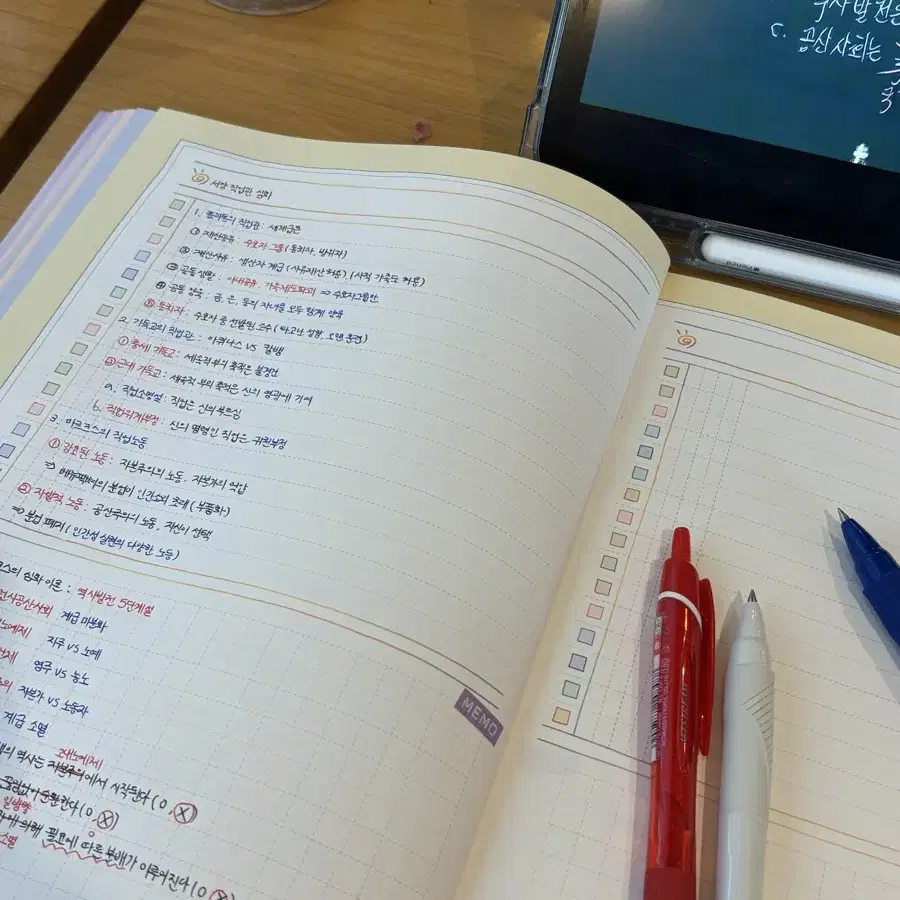 서양 직업관 심화
1. 플라톤의 직업관 : 세계급론
① 재산공유 : 수호자 그룹 (통치자, 방위자)
② 재산사유 : 생산자 계급 (사유재산 허용) (사적 가족도 허용)
③ 공동생활 : 아내공유. 가족제도파괴 ⇒ 수호자그룹만
④ 공동 양육 : 금, 은, 동의 자녀를 모두 함께 양육
⑤ 통치자 : 수호자 중 선발된 소수 (타고난 성향, 오랜 훈련)
2. 기독교의 직업관 : 아퀴나스 VS 칼뱅
① 중세 기독교 : 세속적 부의 축적은 불경건
② 근대 기독교 : 세속적 부의 축적은 신의 영광에 기여
a. 직업소명설 : 직업은 신의 부르심
b. 직업위계부정 : 신의 명령인 직업은 귀천부정
3. 마르크스의 직업노동
① 강요된 노동 : 자본주의의 노동. 자본가의 억압
⇒ 매뉴팩처의 분업이 인간소외 초래 (부품화)
② 자발적 노동 : 공산주의의 노동. 자신이 선택
⇒ 분업 폐지 (인간성 실현의 다양한 노동)
르크스의 심화 이론 : 역사발전 5단계설
원시공산사회 계급 미분화
노예제 지주 VS 노예
영주 VS 농노
자본가 VS 노동자
계급 소멸
MEMO
고대노예제
의 역사는 자본주의에서 시작된다 (O, X)
끊임없이 순환한다 (O, X)
일방향
에 의해 필요에 따른 분배가 이루어진다 (O, X)
소멸
c. 공산사회는
JETSTREAM